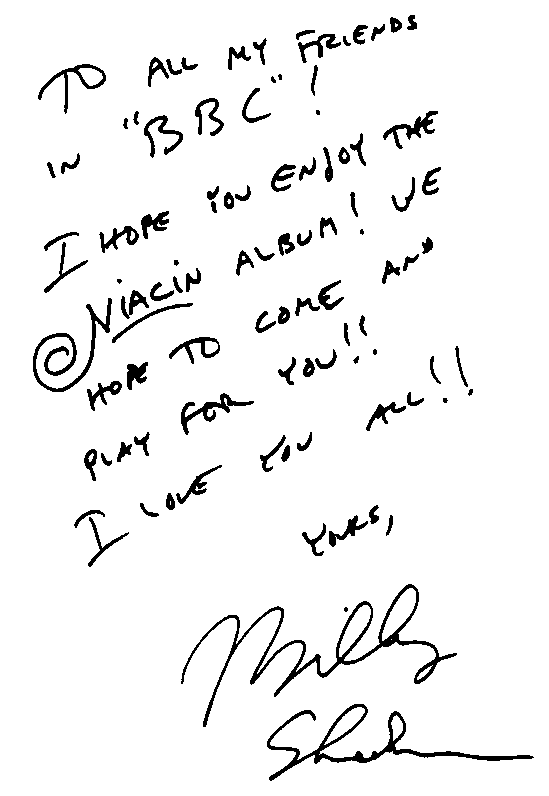 TO ALL MY FRIENDS
IN "BBC"!
I HOPE YOU ENJOY THE
NIACIN ALBUM! WE
HOPE TO COME AND
PLAY FOR YOU!!
I LOVE YOU ALL!!
YOURS,
Billy
Sheehan